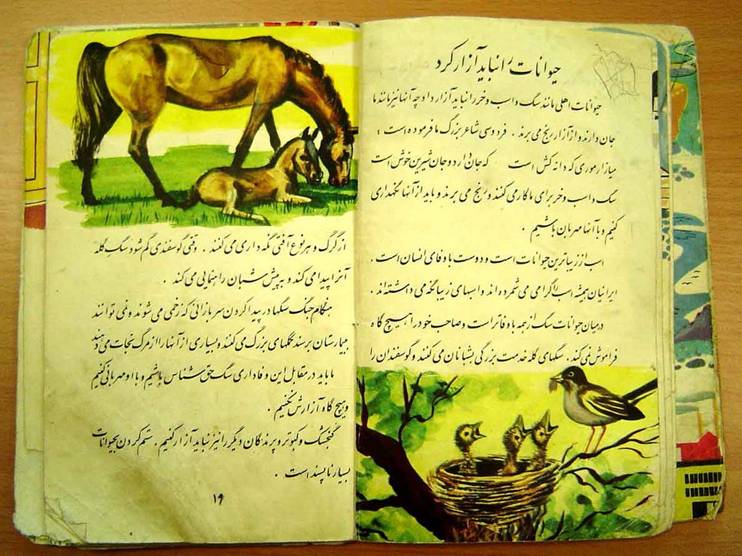 حیوانات را نباید آزار کرد
حیوانات اهلی مانند سگ و اسب و خر را نباید آزار داد چه آنها نیز مانند ما
جان دارند و از آزار رنج می برند . فردوسی شاعر بزرگ ما فرموده است :
میازار موری که دانه کش است که جان دارد و جان شیرین خوش است
سگ و اسب و خر برای ما کار می کنند و رنج می برند و باید از آنها نگهداری
کنیم و با آنها مهربان باشیم .
اسب از زیباترین حیوانات است و دوست با وفای انسان است .
ایرانیان همیشه اسب را گرامی می شمرده اند و اسبهای زیبا نگه می داشته اند .
در میان حیوانات سگ از همه با وفاتر است و صاحب خود را هیچ گاه
فراموش نمی کند . سگهای گله خدمت بزرگی بشبانان می کنند و گوسفندان را
از گرگ و هر نوع آفتی نگه داری می کنند . وقتی گوسفندی گم شود سگ گله
آنرا پیدا می کند و به پیش شبان راهنمایی می کند .
هنگام جنگ سگها در پیدا کردن سربازانی که زخمی می شوند و نمی توانند
به بیمارستان برسند کمکهای بزرگ می کنند و بسیاری از آنها را از مرگ نجات می دهند
ما باید در مقابل این وفاداری سگ حق شناس باشیم و با او مهربانی کنیم
و هیچ گاه آزارش نکنیم .
گنجشک و کبوتر و پرندگان دیگر را نیز نباید آزار کنیم . ستم کردن بحیوانات
بسیار ناپسند است .
۱۹